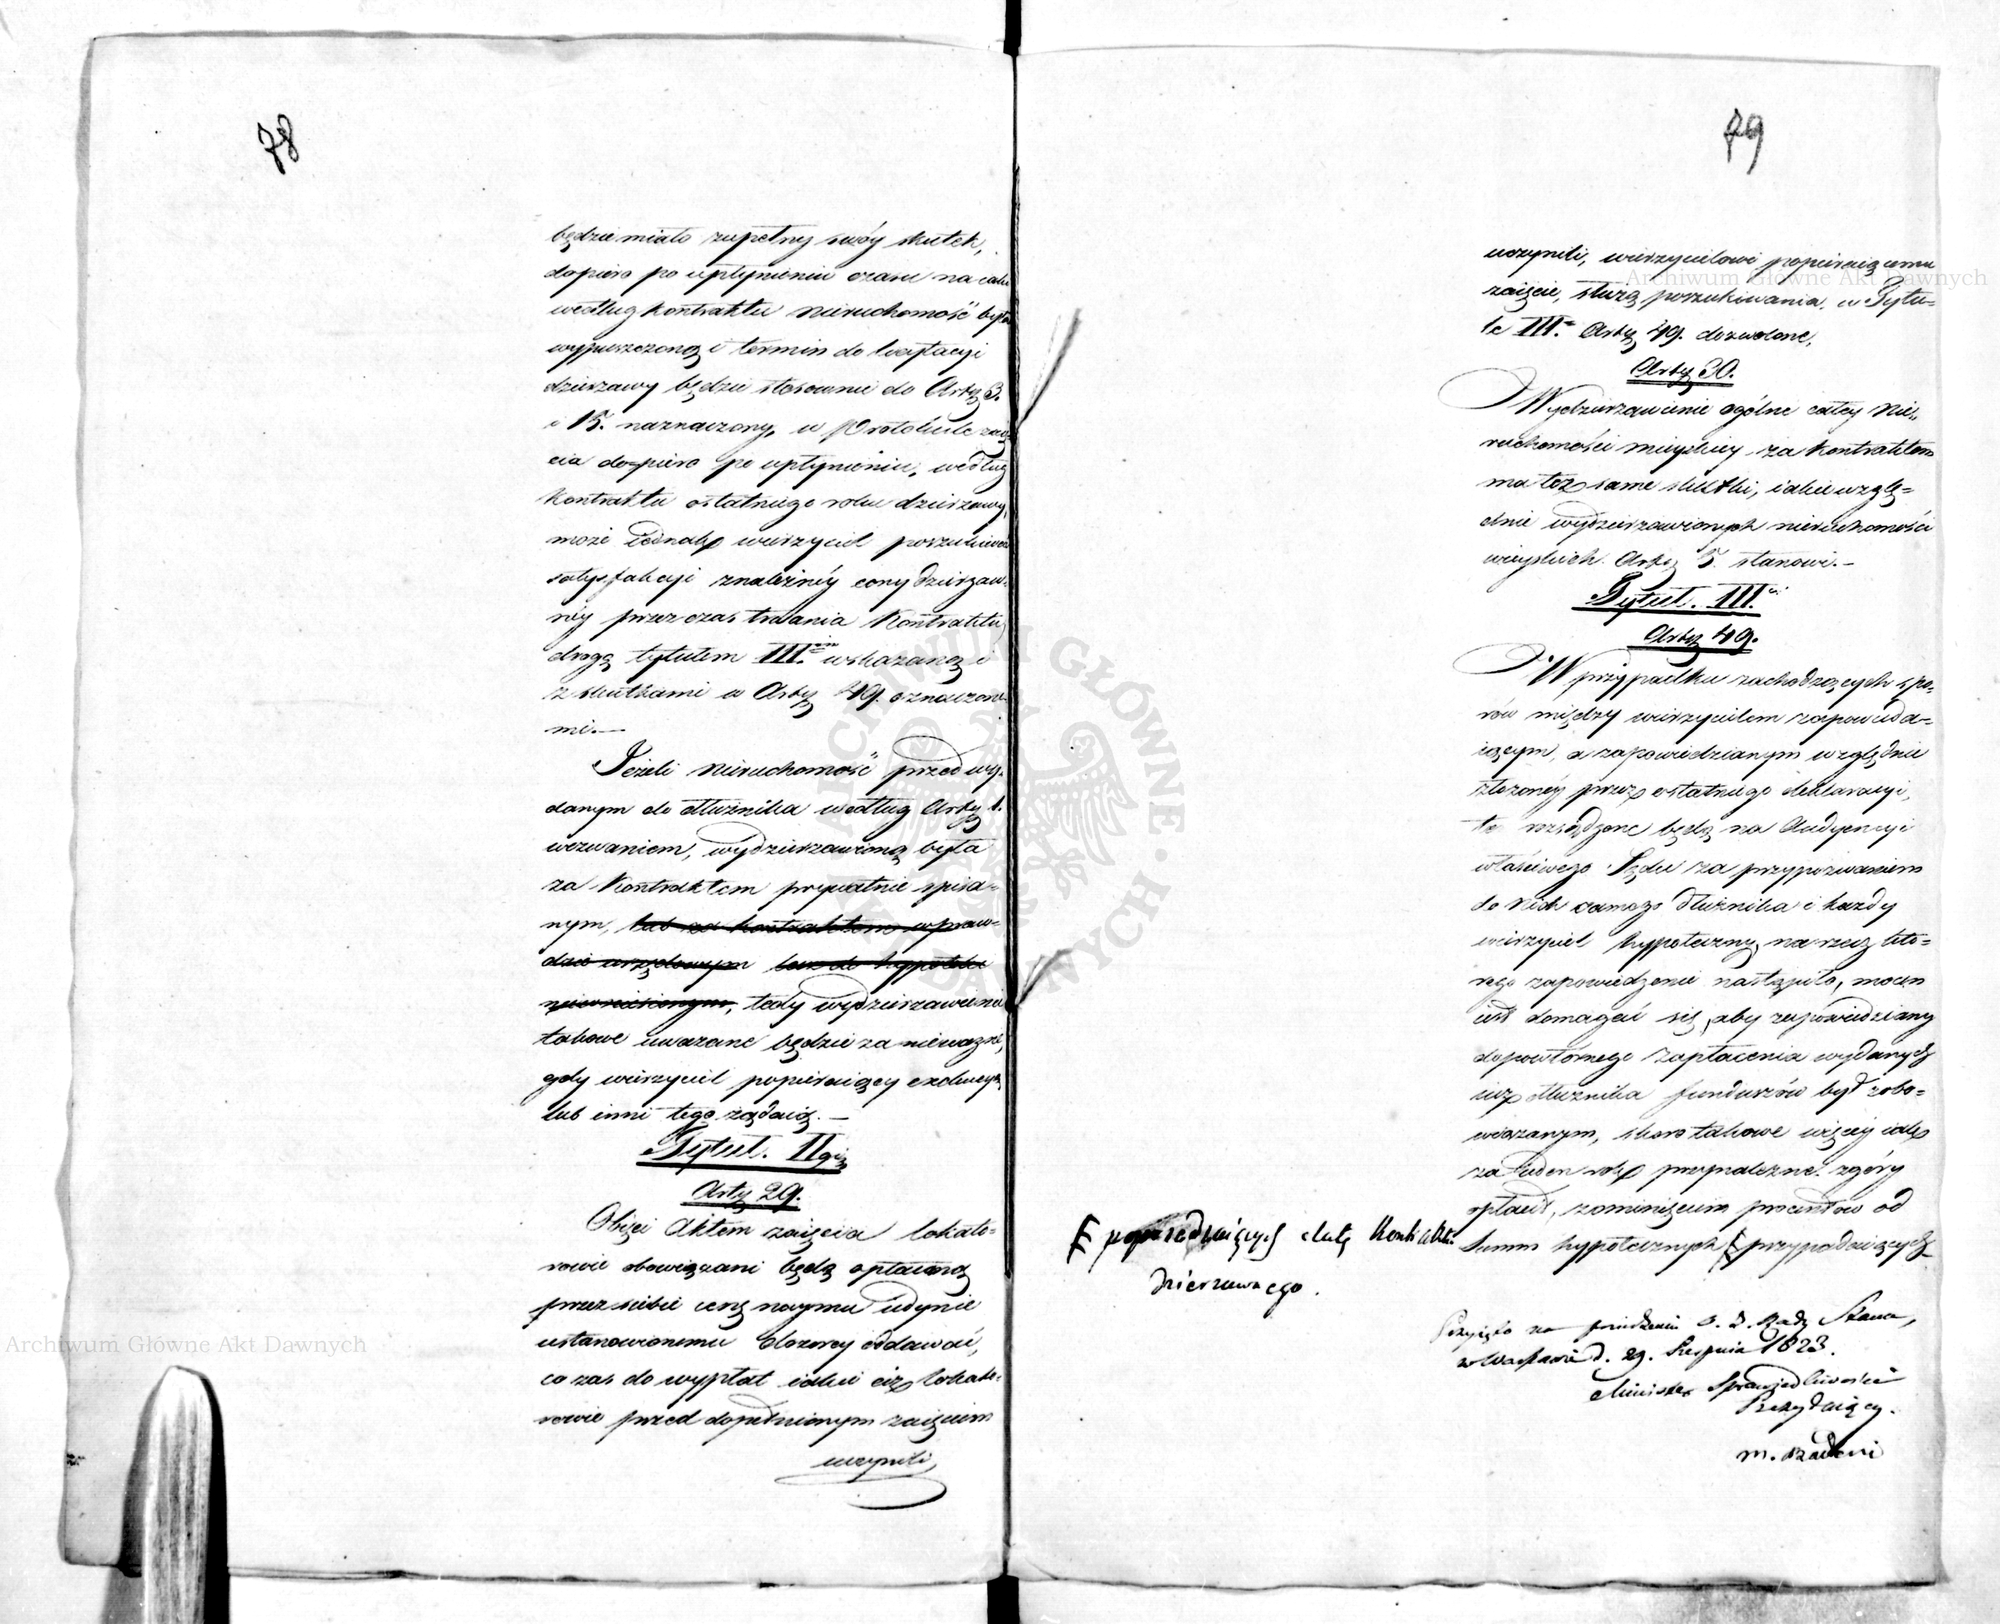 78
będzie miało zupełny swóy skutek,
dopiero po upłynieniu czasu na iaki
według kontraktu nieruchomość była
wypuszczoną i termin do licytacyi
dzierzawy będzie stosownie do Arty 3.
i 15. naznaczony, w Protokule zaię
cia dopiero po upłynieniu, według
kontraktu ostatniego roku dzierzawy,
może iednak wierzyciel poszukiwać
satysfakcyi z należnéy ceny dzierzaw-
néy przez czas trwania Kontraktu,
drogą tytułem III.im wskazaną i
z skutkami w Arty 49. oznaczone-
mi.—
Jeżeli nieruchomość przed wy-
danym do dłużnika według Arty 1.
wezwaniem, wydzierzawioną była
za Kontraktem prywatnie spisa-
nym, lub za kontraktem wpraw-
dzie urzędowym lecz do hyppoteki
niewniesionym, tedy wydzierzawienie
takowe uważane będzie za nieważne,
gdy wierzyciel popieraiący exekucyą
lub inni tego żądaią.—
Tytuł. II gi
Arty 29.
Obięci Aktem zaięcia lokato-
rowie obowiązani będą opłacaną
przez siebie cenę naymu iedynie
ustanowionemu Dozorcy oddawać,
co zas do wypłat iakie ciż lokato-
rowie przed dopełnionym zaięciem
uczynili,
79
uczynili, wierzycielowi popieraiącemu
zaięcie, służą poszukiwania, w Tytu-
le III.m Arty 49. dozwolone.
Arty 30.
Wydzierzawienie ogólne całey Nie-
ruchomości mieyskiey za kontraktem
ma też same skutki, iakie wzglę-
dnie wydzierzawionych nieruchomości
wieyskich Arty 5. stanowi.—
Tytuł. III.ci
Arty 49.
W przypadku zachodzących spo-
rów między wierzycielem zapowiada-
iącym, a zapowiedzianym względnie
złożonéy przez ostatniego deklaracyi,
te rozsądzone będą na Audyencyi
właściwego Sądu za przypozwaniem
do Nich samego Dłużnika i każdy
wierzyciel hyppoteczny na rzecz któ-
rego zapowiedzenie nastąpiło, mocen
iest domagać się, aby zapowiedziany
do powtórnego zapłacenia wydanych
iuż dłużnika funduszów był zobo-
wiązanym, skoro takowe więcéy iak
za ieden rok przynależne z góry
opłacił, z ominięciem procentów od
Summ hypotecznych # przypadaiących
# poprzedzaiących datę Kontraktu
dzierzawnego.
Przyięto na posiedzeniu O. Z. Rady Stanu,
w Warszawie d. 29. Sierpnia 1823.
Minister Sprawiedliwości
Prezyduiący.
M. Badeni
Archiwum Główne Akt Dawnych
Archiwum Główne Akt Dawnych
ARCHIWUM GŁÓWNE AKT DAWNYCH